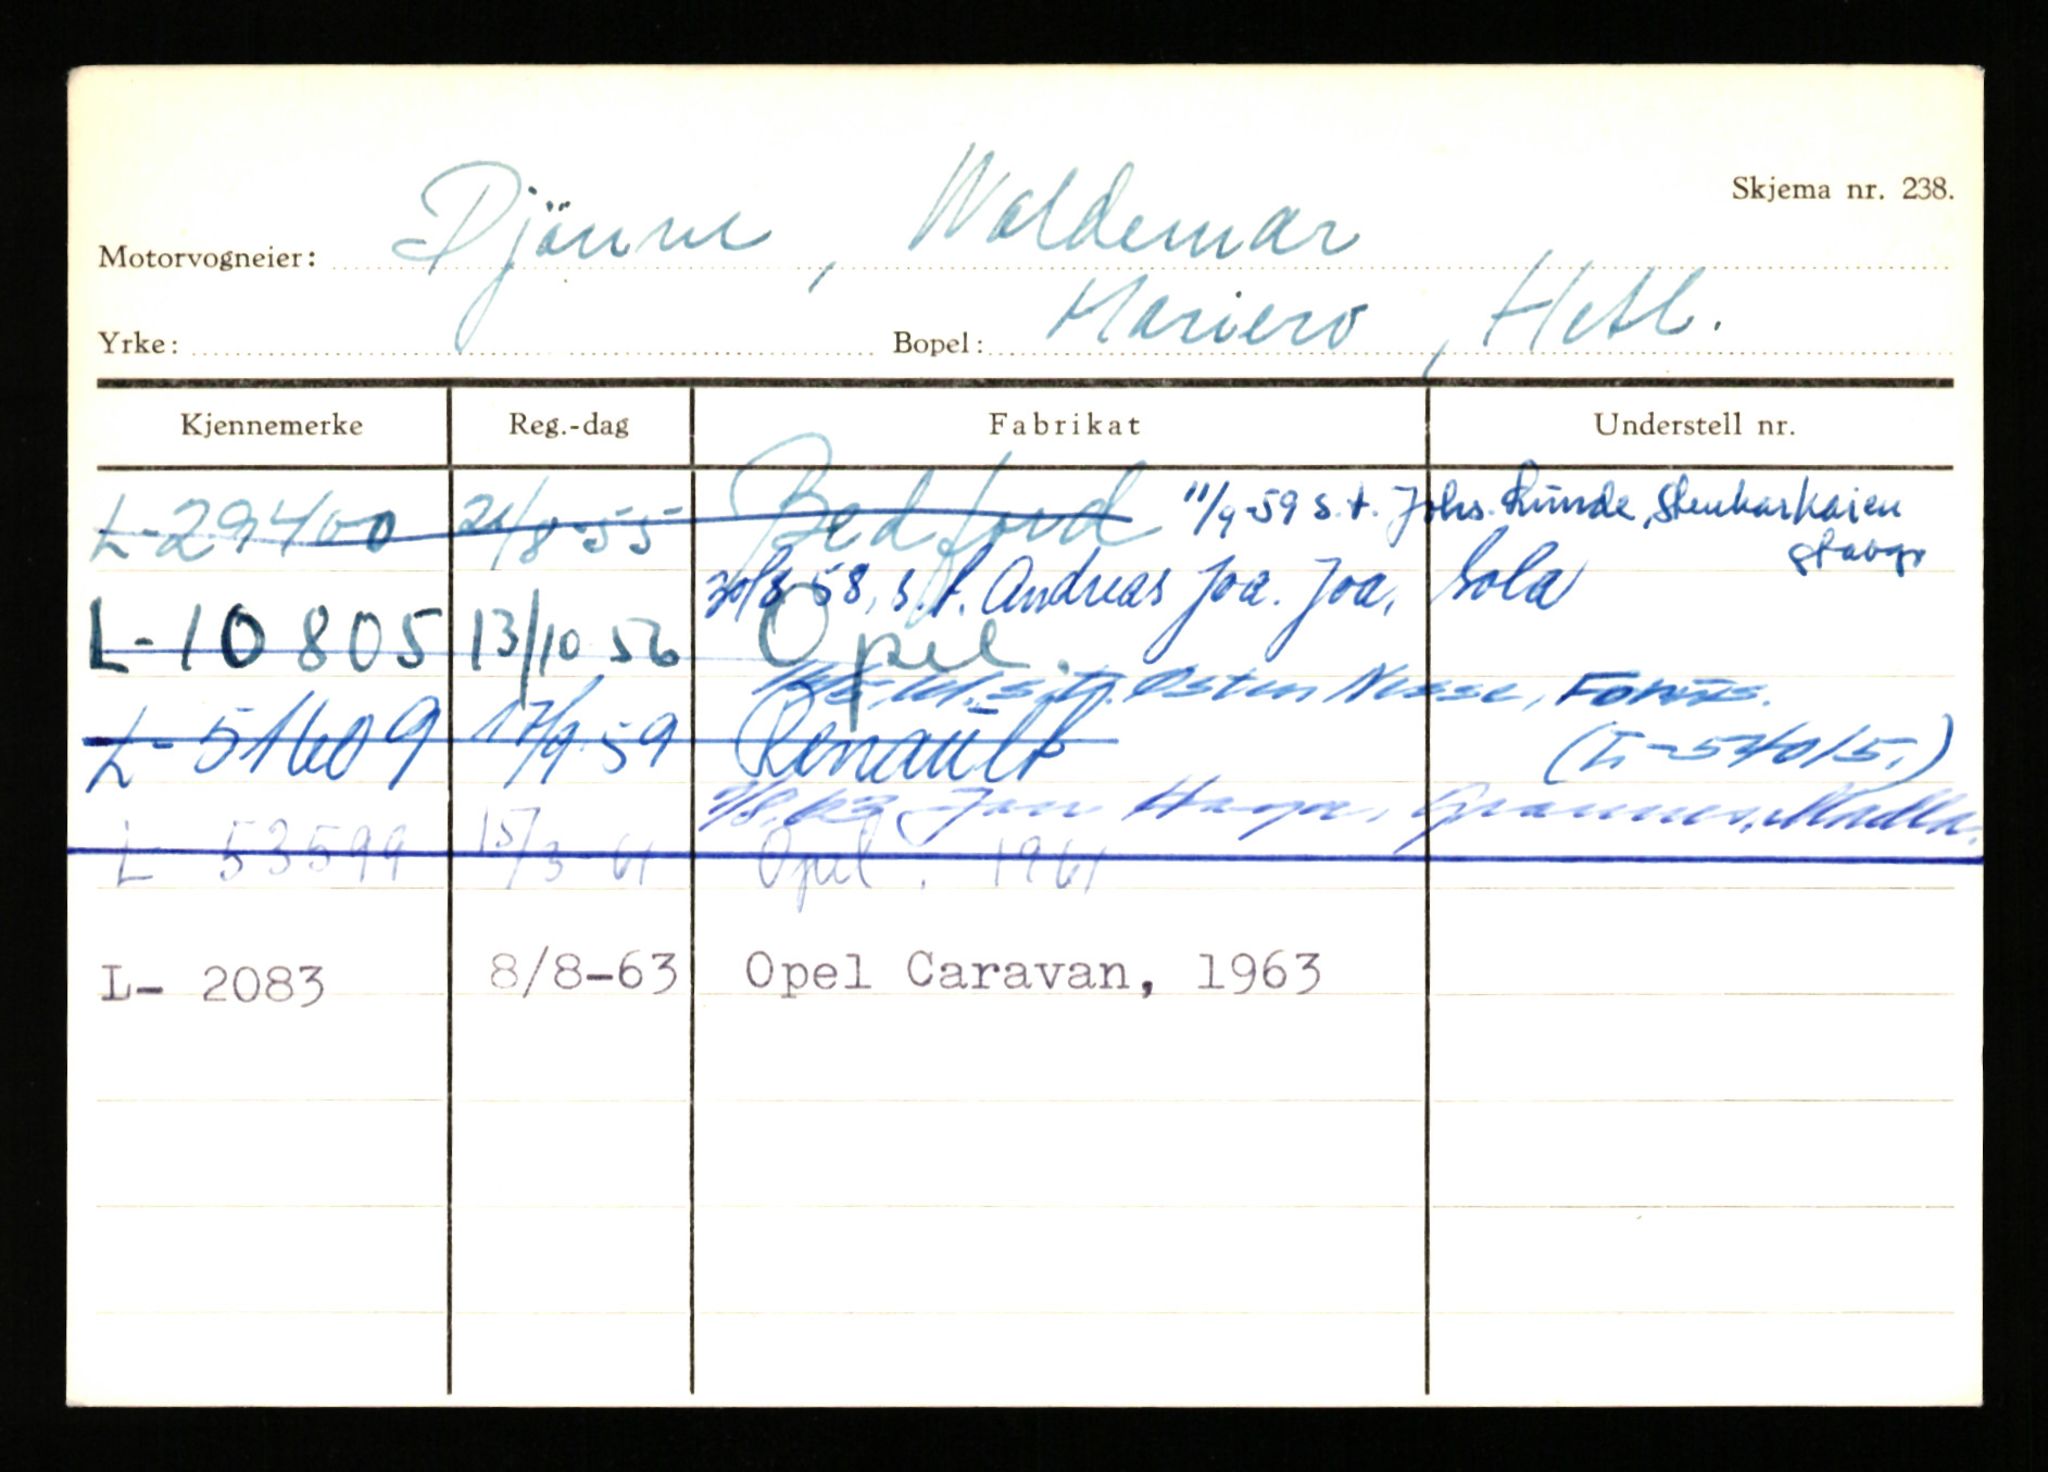 Skjema nr. 238.
Motorvogneier: Djönne, Waldemar
Yrke: Bopel: Mariero, Hetl.
Kjennemerke Reg.-dag Fabrikat Understell nr.
L-29400 21/8-55 Bedford 11/9-59 s.t. Johs. Runde, Stenkarkaien
Stavgr
30/8 58, s.t. Andreas Joa. Joa, Sola
L-10805 13/10 56 Opel.
s.t. Østen Nesse, Forus.
L-51609 17/9-59 Renault (L-54015.)
/8.63 Jan Haga, Grannes, Madla.
L 53599 15/3-61 Opel, 1961
L- 2083 8/8-63 Opel Caravan, 1963